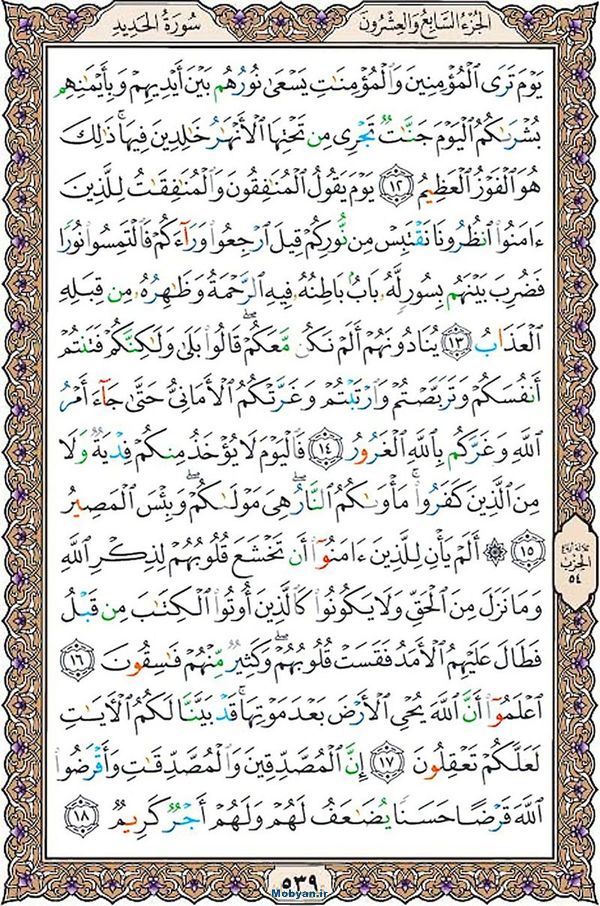 الجُزءُ السَّابِعُ وَالعِشْرُونَ
سُورَةُ الحَدِيدِ
يَوۡمَ تَرَى ٱلۡمُؤۡمِنِينَ وَٱلۡمُؤۡمِنَٰتِ يَسۡعَىٰ نُورُهُم بَيۡنَ أَيۡدِيهِمۡ وَبِأَيۡمَٰنِهِم
بُشۡرَىٰكُمُ ٱلۡيَوۡمَ جَنَّٰتٞ تَجۡرِي مِن تَحۡتِهَا ٱلۡأَنۡهَٰرُ خَٰلِدِينَ فِيهَاۚ ذَٰلِكَ
هُوَ ٱلۡفَوۡزُ ٱلۡعَظِيمُ ١٢ يَوۡمَ يَقُولُ ٱلۡمُنَٰفِقُونَ وَٱلۡمُنَٰفِقَٰتُ لِلَّذِينَ
ءَامَنُواْ ٱنظُرُونَا نَقۡتَبِسۡ مِن نُّورِكُمۡ قِيلَ ٱرۡجِعُواْ وَرَآءَكُمۡ فَٱلۡتَمِسُواْ نُورٗا
فَضُرِبَ بَيۡنَهُم بِسُورٖ لَّهُۥ بَابُۢ بَاطِنُهُۥ فِيهِ ٱلرَّحۡمَةُ وَظَٰهِرُهُۥ مِن قِبَلِهِ
ٱلۡعَذَابُ ١٣ يُنَادُونَهُمۡ أَلَمۡ نَكُن مَّعَكُمۡۖ قَالُواْ بَلَىٰ وَلَٰكِنَّكُمۡ فَتَنتُمۡ
أَنفُسَكُمۡ وَتَرَبَّصۡتُمۡ وَٱرۡتَبۡتُمۡ وَغَرَّتۡكُمُ ٱلۡأَمَانِيُّ حَتَّىٰ جَآءَ أَمۡرُ
ٱللَّهِ وَغَرَّكُم بِٱللَّهِ ٱلۡغَرُورُ ١٤ فَٱلۡيَوۡمَ لَا يُؤۡخَذُ مِنكُمۡ فِدۡيَةٞ وَلَا
مِنَ ٱلَّذِينَ كَفَرُواْۚ مَأۡوَىٰكُمُ ٱلنَّارُۖ هِيَ مَوۡلَىٰكُمۡۖ وَبِئۡسَ ٱلۡمَصِيرُ
١٥ ۞ أَلَمۡ يَأۡنِ لِلَّذِينَ ءَامَنُوٓاْ أَن تَخۡشَعَ قُلُوبُهُمۡ لِذِكۡرِ ٱللَّهِ
وَمَا نَزَلَ مِنَ ٱلۡحَقِّ وَلَا يَكُونُواْ كَٱلَّذِينَ أُوتُواْ ٱلۡكِتَٰبَ مِن قَبۡلُ
فَطَالَ عَلَيۡهِمُ ٱلۡأَمَدُ فَقَسَتۡ قُلُوبُهُمۡۖ وَكَثِيرٞ مِّنۡهُمۡ فَٰسِقُونَ ١٦
ٱعۡلَمُوٓاْ أَنَّ ٱللَّهَ يُحۡيِ ٱلۡأَرۡضَ بَعۡدَ مَوۡتِهَاۚ قَدۡ بَيَّنَّا لَكُمُ ٱلۡأٓيَٰتِ
لَعَلَّكُمۡ تَعۡقِلُونَ ١٧ إِنَّ ٱلۡمُصَّدِّقِينَ وَٱلۡمُصَّدِّقَٰتِ وَأَقۡرَضُواْ
ٱللَّهَ قَرۡضًا حَسَنٗا يُضَٰعَفُ لَهُمۡ وَلَهُمۡ أَجۡرٞ كَرِيمٞ ١٨
ثلاثة أرباع
الحزب
٥٤
٥٣٩
Mobyan.ir